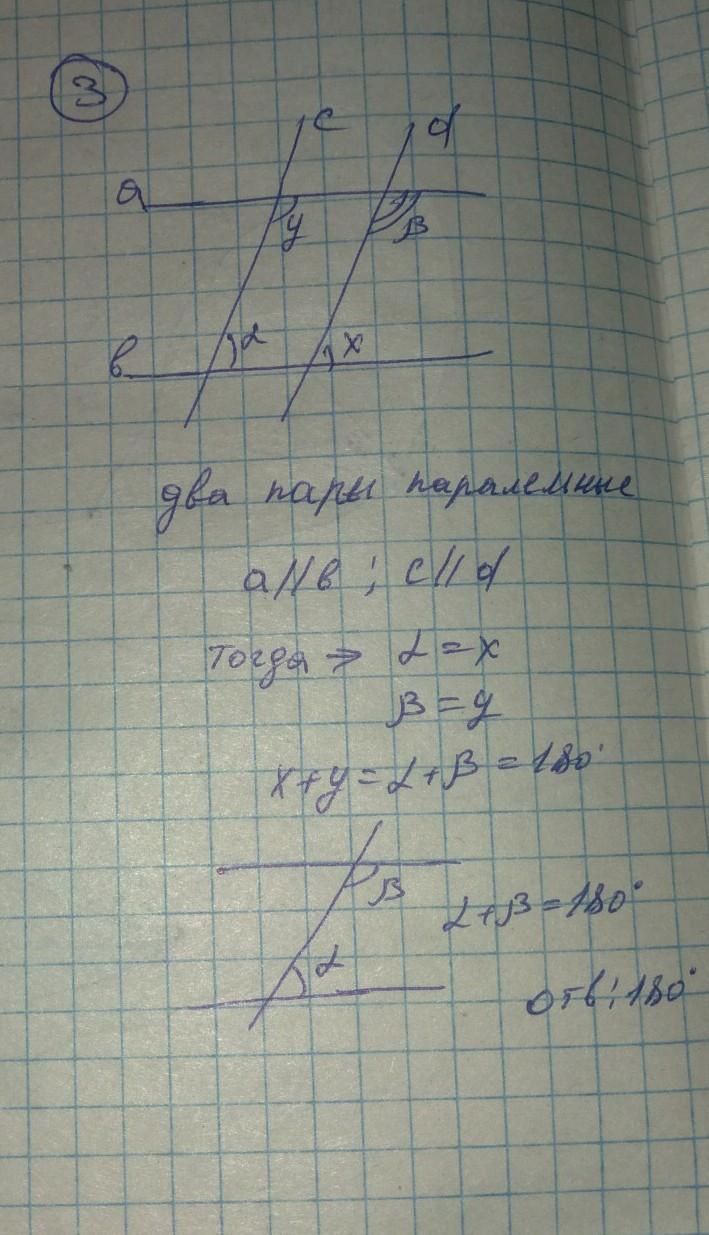 3
c d
a
y β
α x
в
два пары паралемные
a//в ; c//d
тогда ⇒ α = x
β = y
x+y = α+β = 180°
β
α+β = 180°
α
отв: 180°